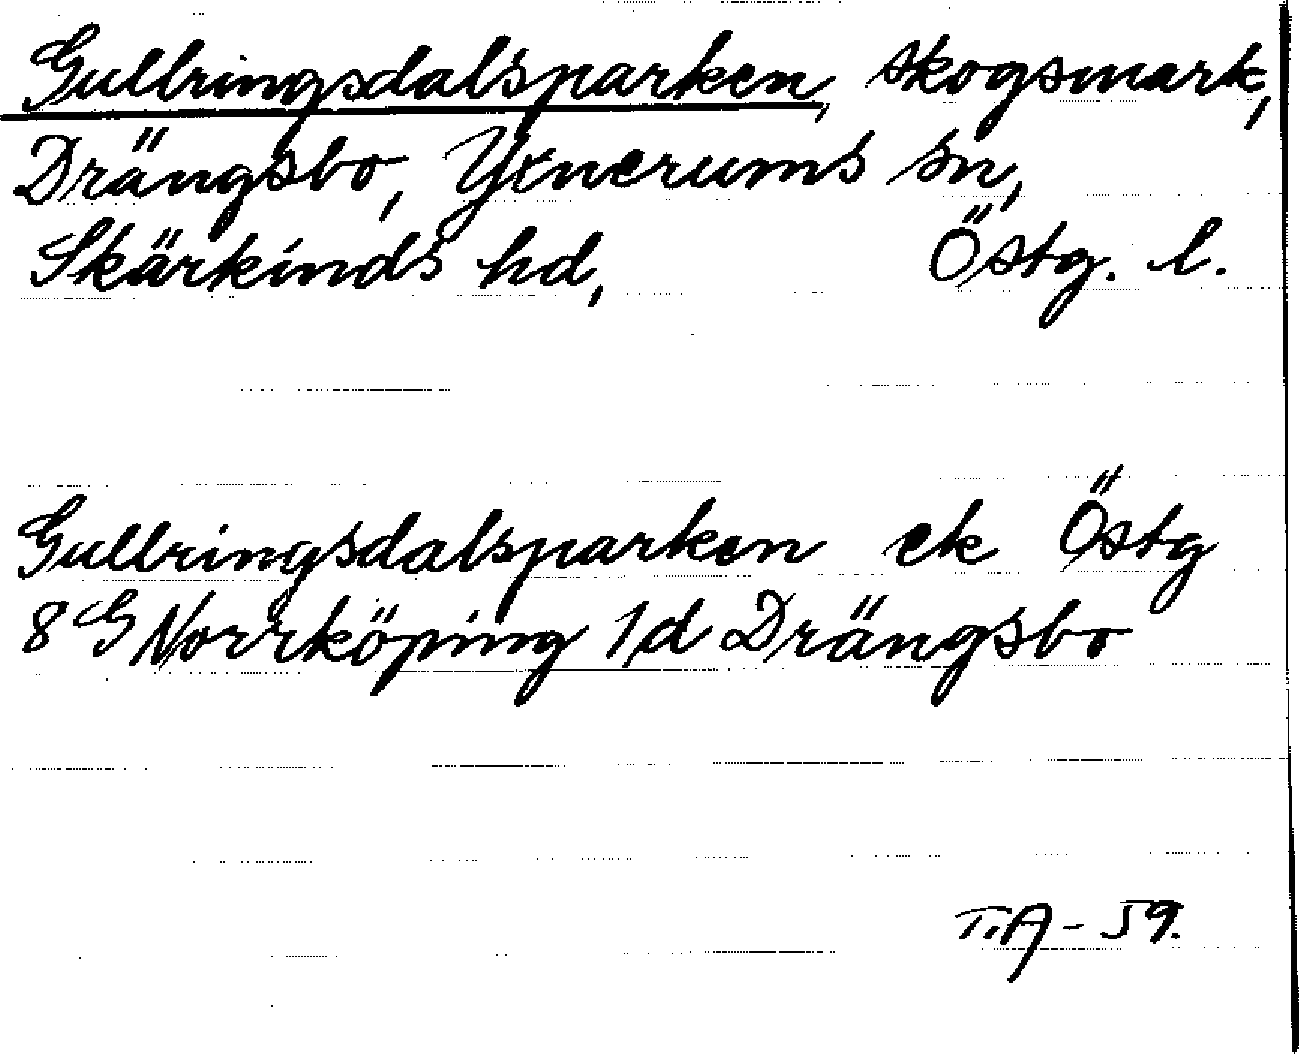 Gullringsdalsparken, skogsmark,
Drängsbo, Yxnerums sn,
Skärkinds hd, Östg. l.
Gullringsdalsparken ek Östg
8 G Norrköping 1d Drängsbo
T.A - 59.